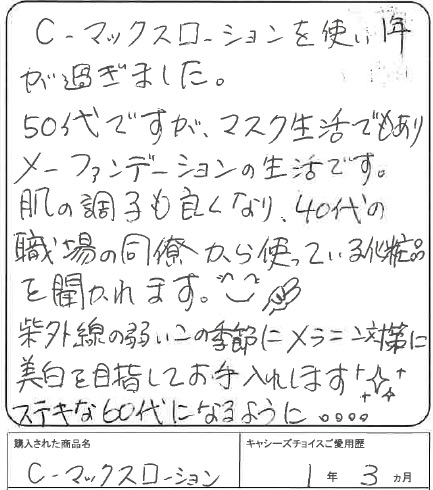 C-マックスローションを使い1年
が過ぎました。
50代ですが、マスク生活でもあり
ノーファンデーションの生活です。
肌の調子も良くなり、40代の
職場の同僚から使っている化粧品
を聞かれます。
紫外線の弱いこの季節にメラニン対策に
美白を目指してお手入れします
ステキな60代になるように。。。。
購入された商品名 キャシーズチョイスご愛用歴
C-マックスローション 1年3ヵ月